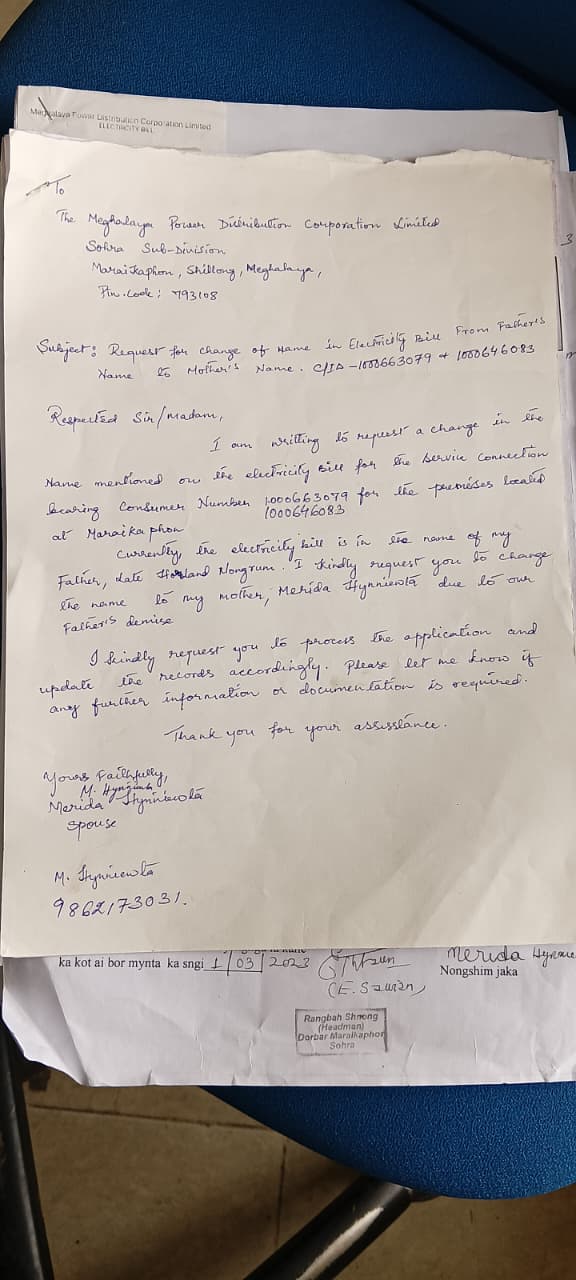 Meghalaya Power Distribution Corporation Limited
ELECTRICITY BILL
To
The Meghalaya Power Distribution Corporation Limited
Sohra Sub-Division
Maraikaphon, Shillong, Meghalaya,
Pin.code: 793108
Subject: Request for change of Name in Electricity Bill From Father's
Name to Mother's Name. C/ID - 1000663079 & 1000646083
Respected Sir/Madam,
I am writing to request a change in the
Name mentioned on the electricity Bill for the Service Connection
bearing Consumer Number 1000663079 for the premises located
1000646083
at Maraikaphon
Currently, the electricity bill is in the name of my
Father, Late Nongrum. I kindly request you to change
the name to my mother, Merida Hynniewta due to our
Father's demise
I kindly request you to process the application and
update the records accordingly. Please let me know if
any further information or documentation is required.
Thank you for your assisstance.
Yours Faithfully,
M. Hynniewta
Merida Hynniewta
Spouse
M. Hynniewta
9862173031.
ka kot ai bor mynta ka sngi 1/03/2023
Merida Hynnie
(E. Sawian)
Nongshim jaka
Rangbah Shnong
(Headman)
Dorbar Maraikaphon
Sohra
3